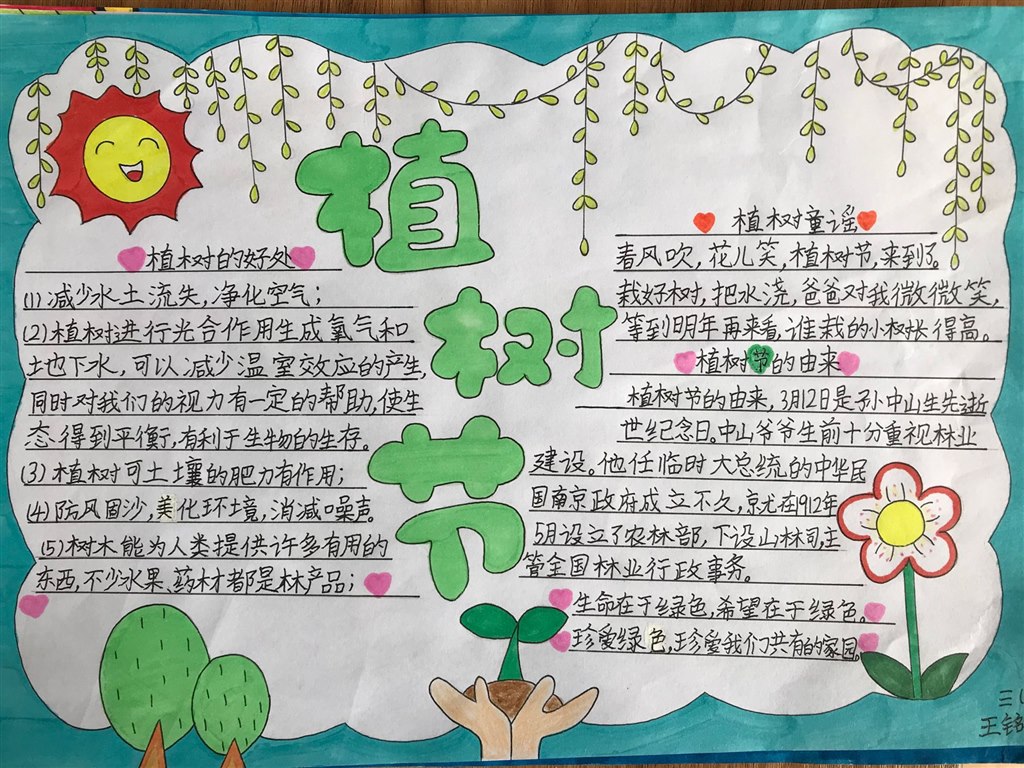 植树节
植树的好处
(1)减少水土流失,净化空气;
(2)植树进行光合作用生成氧气和
土地下水,可以减少温室效应的产生,
同时对我们的视力有一定的帮助,使生
态得到平衡,有利于生物的生存。
(3)植树可土壤的肥力有作用;
(4)防风固沙,美化环境,消减噪声。
(5)树木能为人类提供许多有用的
东西,不少水果、药材都是林产品;
植树童谣
春风吹,花儿笑,植树节,来到了。
栽好树,把水浇,爸爸对我微微笑,
等到明年再来看,谁栽的小树长得高。
植树节的由来
植树节的由来,3月12日是孙中山生先逝
世纪念日。中山爷爷生前十分重视林业
建设。他任临时大总统的中华民
国南京政府成立不久,就在912年
5月设立了农林部,下设山林司,主
管全国林业行政事务。
生命在于绿色,希望在于绿色。
珍爱绿色,珍爱我们共有的家园。
三(
王铭